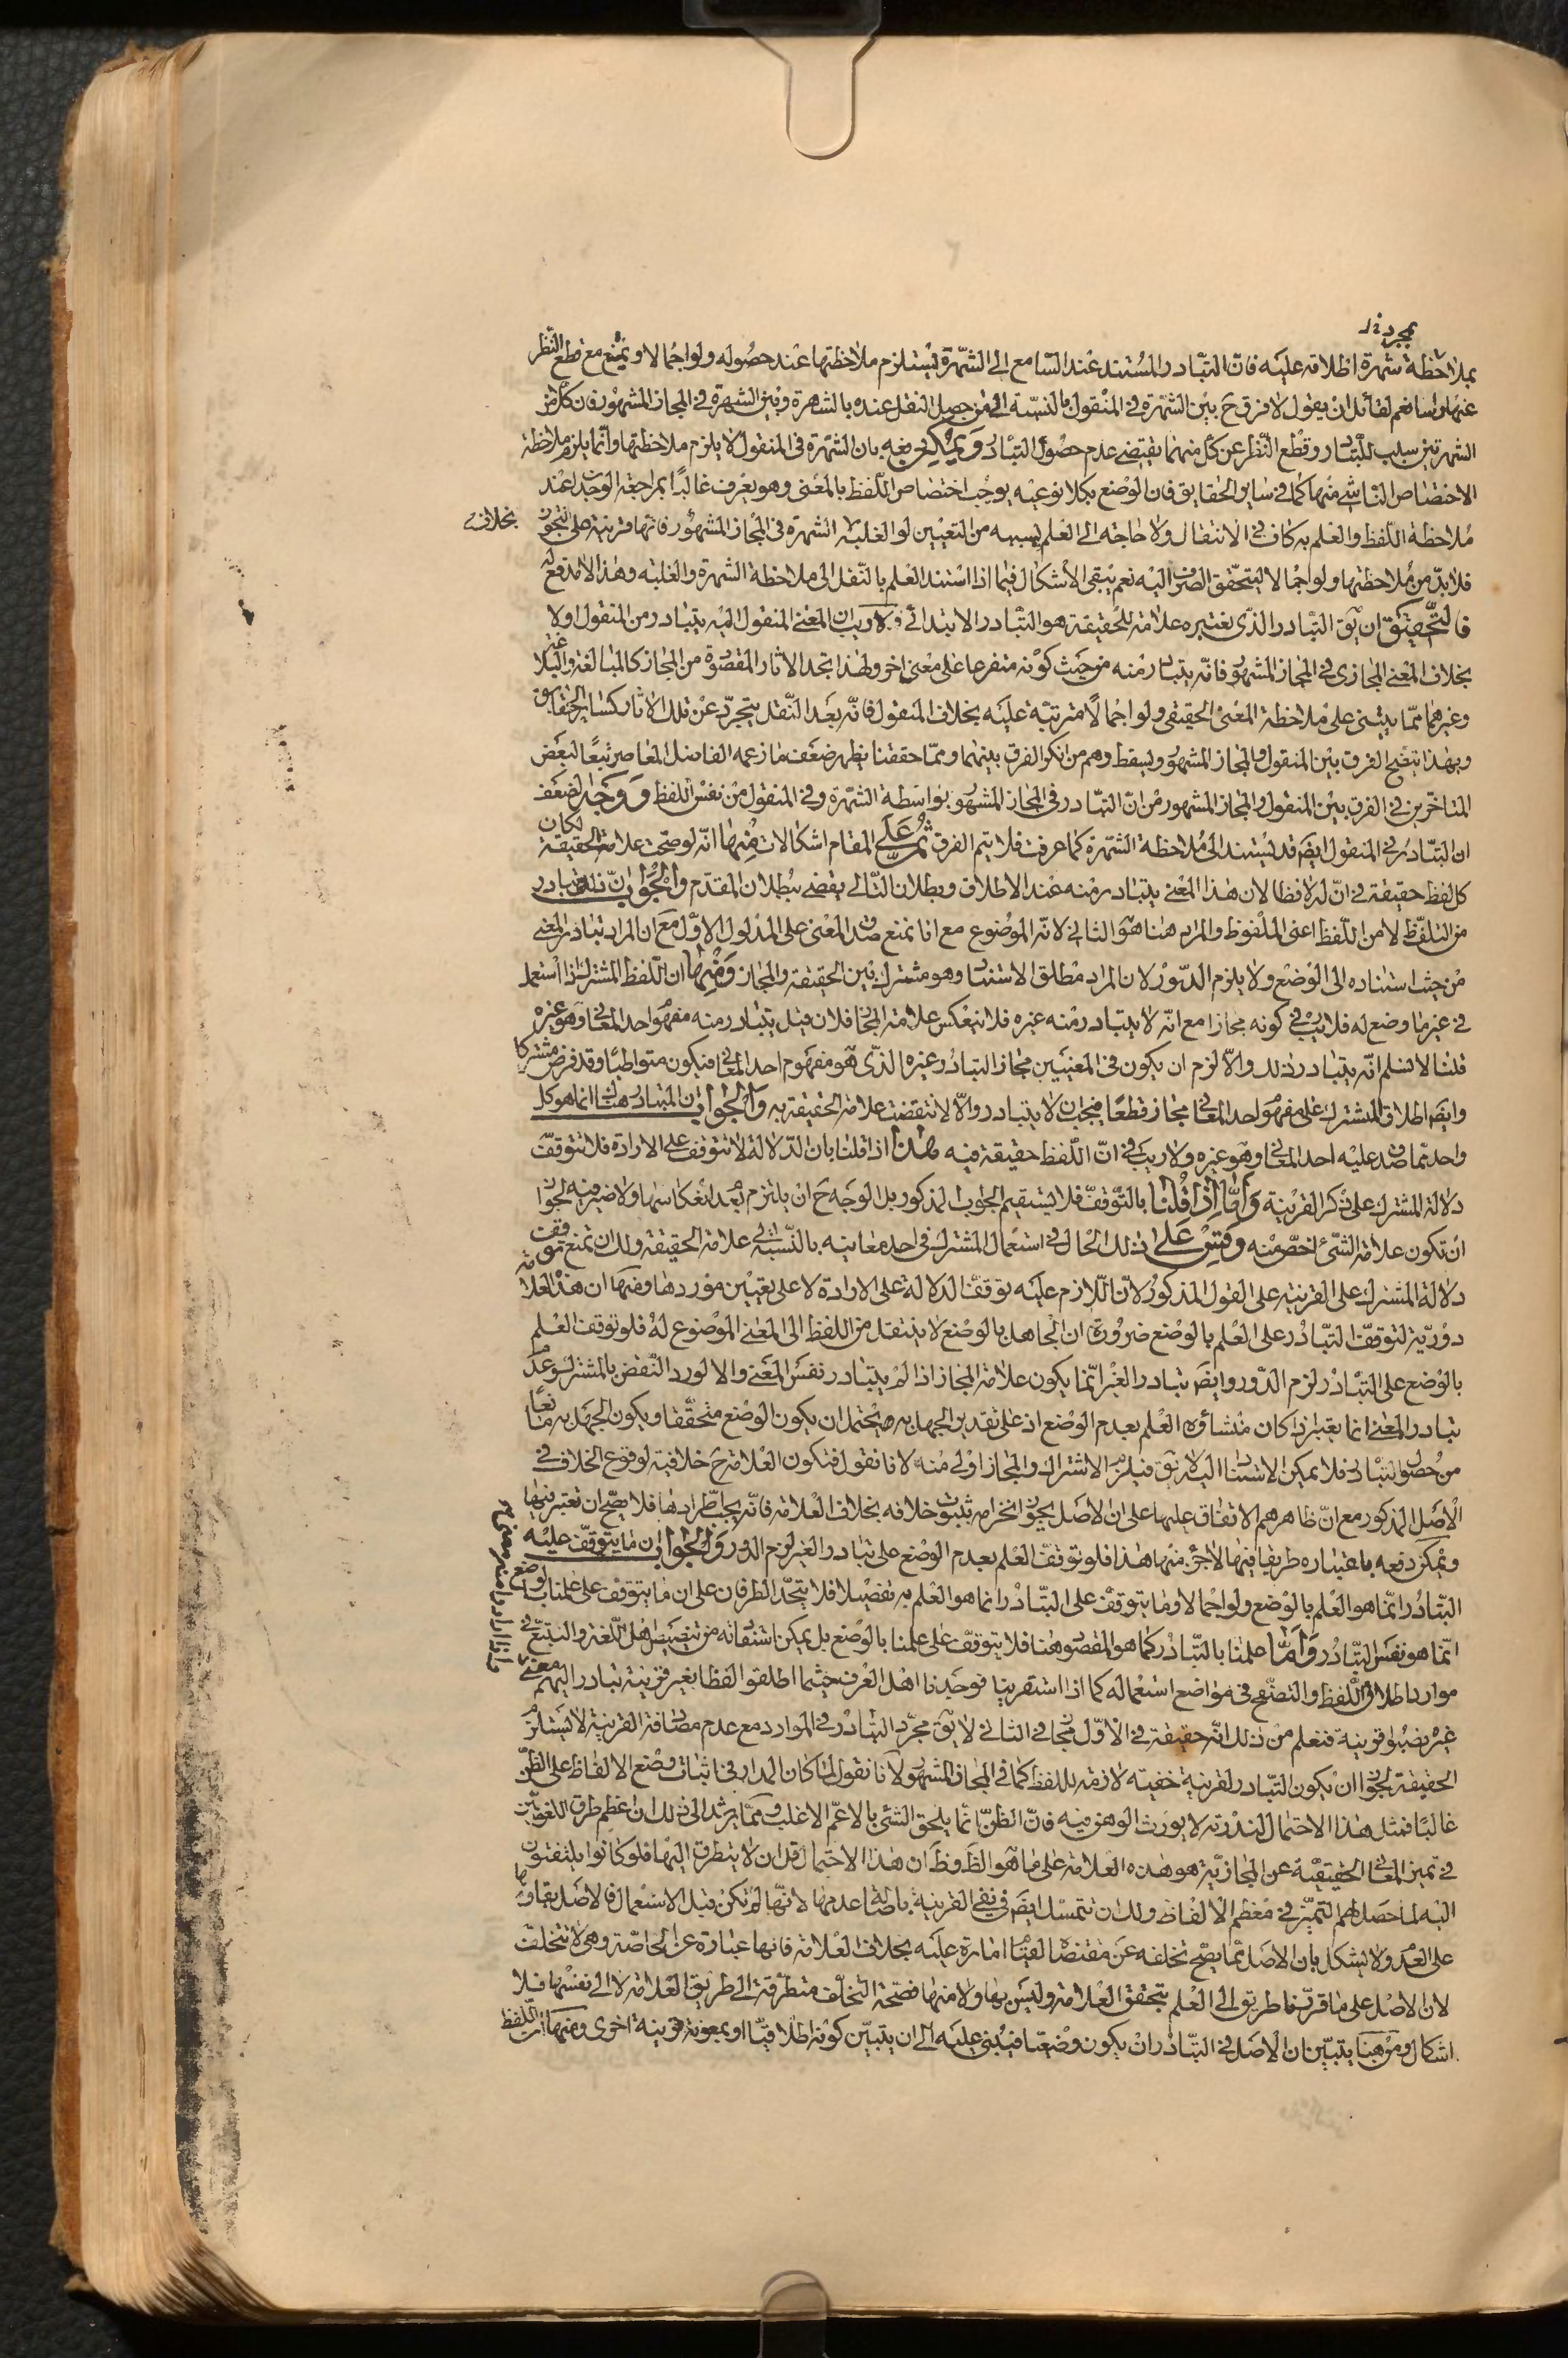 بملاحظة شهرة اطلاقه عليه فانّ التبادر المستند عند السامع الى الشهرة يستلزم ملاحظتها عند حصوله ولو اجمالا ويمتنع مع قطع النظر
عنها نعم لقائل ان يقول لا فرق ح بين الشهرة في المنقول بالنسبة الى من حصل النقل عنده بالشهرة وبين الشهرة في المجاز المشهور فان كلّا من
الشهرتين سبب للتبادر وقطع النظر عن كل منهما يقتضى عدم حصول التبادر ويمكن دفعه بان الشهرة في المنقول لا يلزم ملاحظتها وانما يلزم ملاحظة
الاختصاص الناشى منها كما في ساير الحقايق فان الوضع بكلا نوعيه يوجب اختصاص اللفظ بالمعنى وهو يعرف غالبًا بمراجعة الوجدان عند
ملاحظة اللفظ والعلم به كاف في الانتقال ولا حاجة الى العلم بسببه من التعيين او الغلبة بخلاف الشهرة في المجاز المشهور فانها قرينة على التجوز
فلا بدّ من ملاحظتها ولو اجمالا ليتحقق الصرف اليه نعم يبقى الاشكال فيما اذا استند العلم بالنقل الى ملاحظة الشهرة والغلبة وهذا لا مدفع له
فالتحقيق ان يق التبادر الذى نعتبره علامة للحقيقة هو التبادر الابتدائى ولا ريب ان المعنى المنقول اليه يتبادر من المنقول اولا
بخلاف المعنى المجازى في المجاز المشهور فانّه يتبادر منه من حيث كونه متفرعا على معنى اخر ولهذا تجد الاثار المقصودة من المجاز كالمبالغة والبلاغة
وغيرهما مما يبتنى على ملاحظة المعنى الحقيقى ولو اجمالًا مترتبة عليه بخلاف المنقول فانّه بعد النقل يتجرّد عن تلك الاثار كساير الحقايق
وبهذا يتضح الفرق بين المنقول والمجاز المشهور ويسقط وهم من انكر الفرق بينهما ومما حققنا يظهر ضعف ما زعمه الفاضل المعاصر تبعًا لبعض
المتاخرين في الفرق بين المنقول والمجاز المشهور من انّ التبادر في المجاز المشهور بواسطة الشهرة وفي المنقول من نفس اللفظ ووجه الضعف
ان التبادر في المنقول ايضا قد يستند الى ملاحظة الشهرة كما عرفت فلا يتم الفرق ثم على المقام اشكالات منها انّه لو صحت علامة الحقيقة لكان
كل لفظ حقيقة في انّ له لافظا لان هذا المعنى يتبادر منه عند الاطلاق وبطلان التالى يقضى ببطلان المقدّم والجواب انّ ذلك يتبادر
من التلفظ لا من اللفظ اعنى الملفوظ والمراد هنا هو الثانى لانّه الموضوع مع انا نمنع صدق المعنى على المدلول الاوّل مع ان المراد تبادر المعنى
من حيث استناده الى الوضع ولا يلزم الدّور لان المراد مطلق الاستناد وهو مشترك بين الحقيقة والمجاز ومنها ان اللفظ المشترك اذا استعمل
في غير ما وضع له فلا ريب في كونه مجازا مع انّه لا يتبادر منه غيره فلا ينعكس علامة المجاز فان قيل يتبادر منه مفهوم احد المعانى وهو غيره
قلنا لا نسلم انّه يتبادر ذلك والّا لزم ان يكون في المعنيين مجاز التبادر غيره الذى هو مفهوم احد المعانى فيكون متواطيًا وقد فرض مشتركا
وايضا اطلاق المشترك على مفهوم احد المعانى مجاز قطعًا فيجب ان لا يتبادر والّا لانتقضت علامة الحقيقة به والجواب ان المتبادر هناك انما هو كل
واحد مما صدق عليه احد المعانى وهو غيره ولا ريب في انّ اللفظ حقيقة فيه هذا اذا قلنا بان الدلالة لا تتوقف على الارادة فلا تتوقف
دلالة المشترك على ذكر القرينة وامّا اذا قلنا بالتوقف فلا يستقيم الجواب المذكور بل الوجه ح ان يلتزم بعدم انعكاسها ولا ضير فيه لجواز
ان تكون علامة الشئ اخصّ منه وقس على ذلك الحال في استعمال المشترك في احد معانيه بالنّسبة الى علامة الحقيقة ولك ان تمنع توقف
دلالة المشترك على القرينة على القول المذكور لانّ اللازم عليه توقف الدلالة على الارادة لا على تعيين موردها ومنها ان هذه العلامة
دوريّة لتوقف التبادر على العلم بالوضع ضرورة ان الجاهل بالوضع لا ينتقل من اللفظ الى المعنى الموضوع له فلو توقف العلم
بالوضع على التبادر لزم الدّور وايضا تبادر الغير انّما يكون علامة المجاز اذا لم يتبادر نفس المعنى والا لورد النقض بالمشترك وعدم
تبادر المعنى انما يعتبر اذا كان منشاؤه العلم بعدم الوضع اذ على تقدير الجهل به يحتمل ان يكون الوضع متحققا ويكون الجهل به مانعًا
من حصول التبادر فلا يمكن الاستناد اليه لا يق فيلزم الاشتراك والمجاز اولى منه لانا نقول فتكون العلامة ح خلافية لوقوع الخلاف في
الاصل المذكور مع انّ ظاهرهم الاتفاق عليها على ان الاصل يجوز انخرامه بثبوت خلافه بخلاف العلامة فانّه يجب اطّرادها فلا يصحّ ان تعتبر فيها
ويمكن دفعه باعتباره طريقا فيها لا جزء منها هذا فلو توقف العلم بعدم الوضع على تبادر الغير لزم الدور والجواب ان ما يتوقف عليه
التبادر انّما هو العلم بالوضع ولو اجمالا وما يتوقف على التبادر انما هو العلم به تفصيلا فلا يتحد الطرفان على ان ما يتوقف على علمنا بالوضع
انّما هو نفس التبادر وامّا علمنا بالتبادر كما هو المقصود هنا فلا يتوقف على علمنا بالوضع بل يمكن استفادته من تنصيص اهل اللغة والتتبع في
موارد اطلاق اللفظ والتصفح في مواضع استعماله كما اذا استقرينا فوجدنا اهل العرف حيثما اطلقوا لفظا بغير قرينة تبادر اليهم معنى
غير نصبوا قرينة فنعلم من ذلك انه حقيقة في الاوّل مجاز في الثانى لا يق مجرّد التبادر في الموارد مع عدم مصادفة القرينة لا يستلزم
الحقيقة لجواز ان يكون التبادر لقرينة خفية لازمة للفظ كما في المجاز المشهور لانا نقول لما كان المدار في اثبات وضع الالفاظ على الظنّ
غالبًا فمثل هذا الاحتمال لندرته لا يورث الوهن فيه فانّ الظنّ انّما يلحق الشئ بالاعمّ الاغلب ومما يرشد الى ذلك ان اعظم طرق اللغويّين
في تميز المعانى الحقيقية عن المجازيّة هو هذه العلامة على ما هو الظ وظ ان هذا الاحتمال قل ان لا يتطرق اليها فلو كانوا يلتفتون
اليه لما حصل لهم التميّز في معظم الالفاظ ولك ان تتمسك ايضا في نفى القرينة باصالة عدمها لانّها لم تكن قبل الاستعمال فالاصل بقاؤها
على العدم ولا يشكل بان الاصل ممّا يصحّ تخلفه عن مقتضاه لقيام امارة عليه بخلاف العلامة فانها عبارة عن الخاصّة وهى لا تتخلف
لان الاصل على ما قررنا طريق الى العلم بتحقق العلامة وليس بها ولا منها فصحة التخلّف متطرقة الى طريق العلامة لا الى نفسها فلا
اشكال ومن هنا يتبيّن ان الاصل في التبادر ان يكون وضعيّا فيبنى عليه الى ان يتبيّن كونه اطلاقيّا او بمعونة قرينة اخرى ومنها ان اللفظ